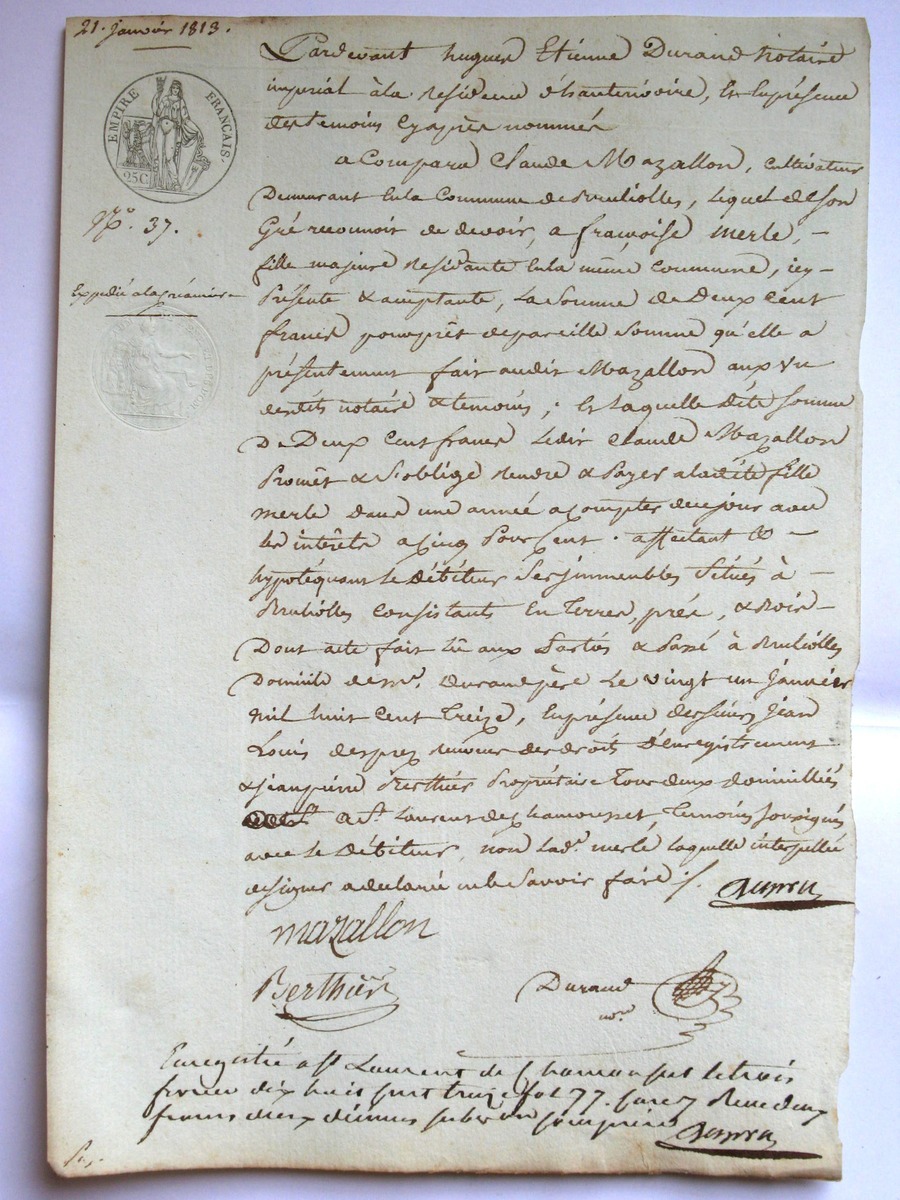 21. janvier 1813.
EMPIRE FRANÇAIS.
25C
N.º 37.
Expédié a la créancière
Pardevant hugues Etienne Durand Notaire
imperial à la residence d'hauterivoire, Et Enprésence
des temoins Cy après nommés
a Comparu Claude Mazallon, cultivateur
Demeurant En la Commune de Brulliolles, Lequel de Son
Gré reconnoit de devoir, a françoise merle, –
fille majeure Residante En la même Commune, icy –
Présente & aceptante, La Somme de Deux Cent
francs pour prêt de pareille Somme qu'elle a
présentement fait audit Mazallon aux vu
desdits notaire & temoins ; Et laquelle ditte Somme
De Deux Cent francs Ledit Claude Mazallon
Promêt & S'oblige rendre & Payer a la ditte fille
merle Dans une année a compter de ce jour avec
les intérêts a Cinq Pour Cent. affectant &
hypotéquant le Débiteur Ses jmmeubles Situés à –
Brulliolles Consistants En Terres, prés, & Bois –
Dont acte fait Lû aux Parties & Passé à Brulliolles
Domicile de Mr. Durand père Le vingt un Janvier
Mil huit Cent Treize, En présence des Sieurs Jean
Louis despres receveur des droits D'Enregistrement
& jean pierre Berthier Propriétaire Tous deux domicilliés
a St. Laurent de Chamousset, Temoins Soussignés
avec le Débiteur, non lad. merle, laquelle interpellée
de signer a declaré ne le Savoir faire ./.
mazallon
Berthier
Durand
nore
Enregistré a St Laurent de Chamousset le trois
fevrier dix huit cent treize fol 77. Reçu deux
francs deux décimes subvention comprise